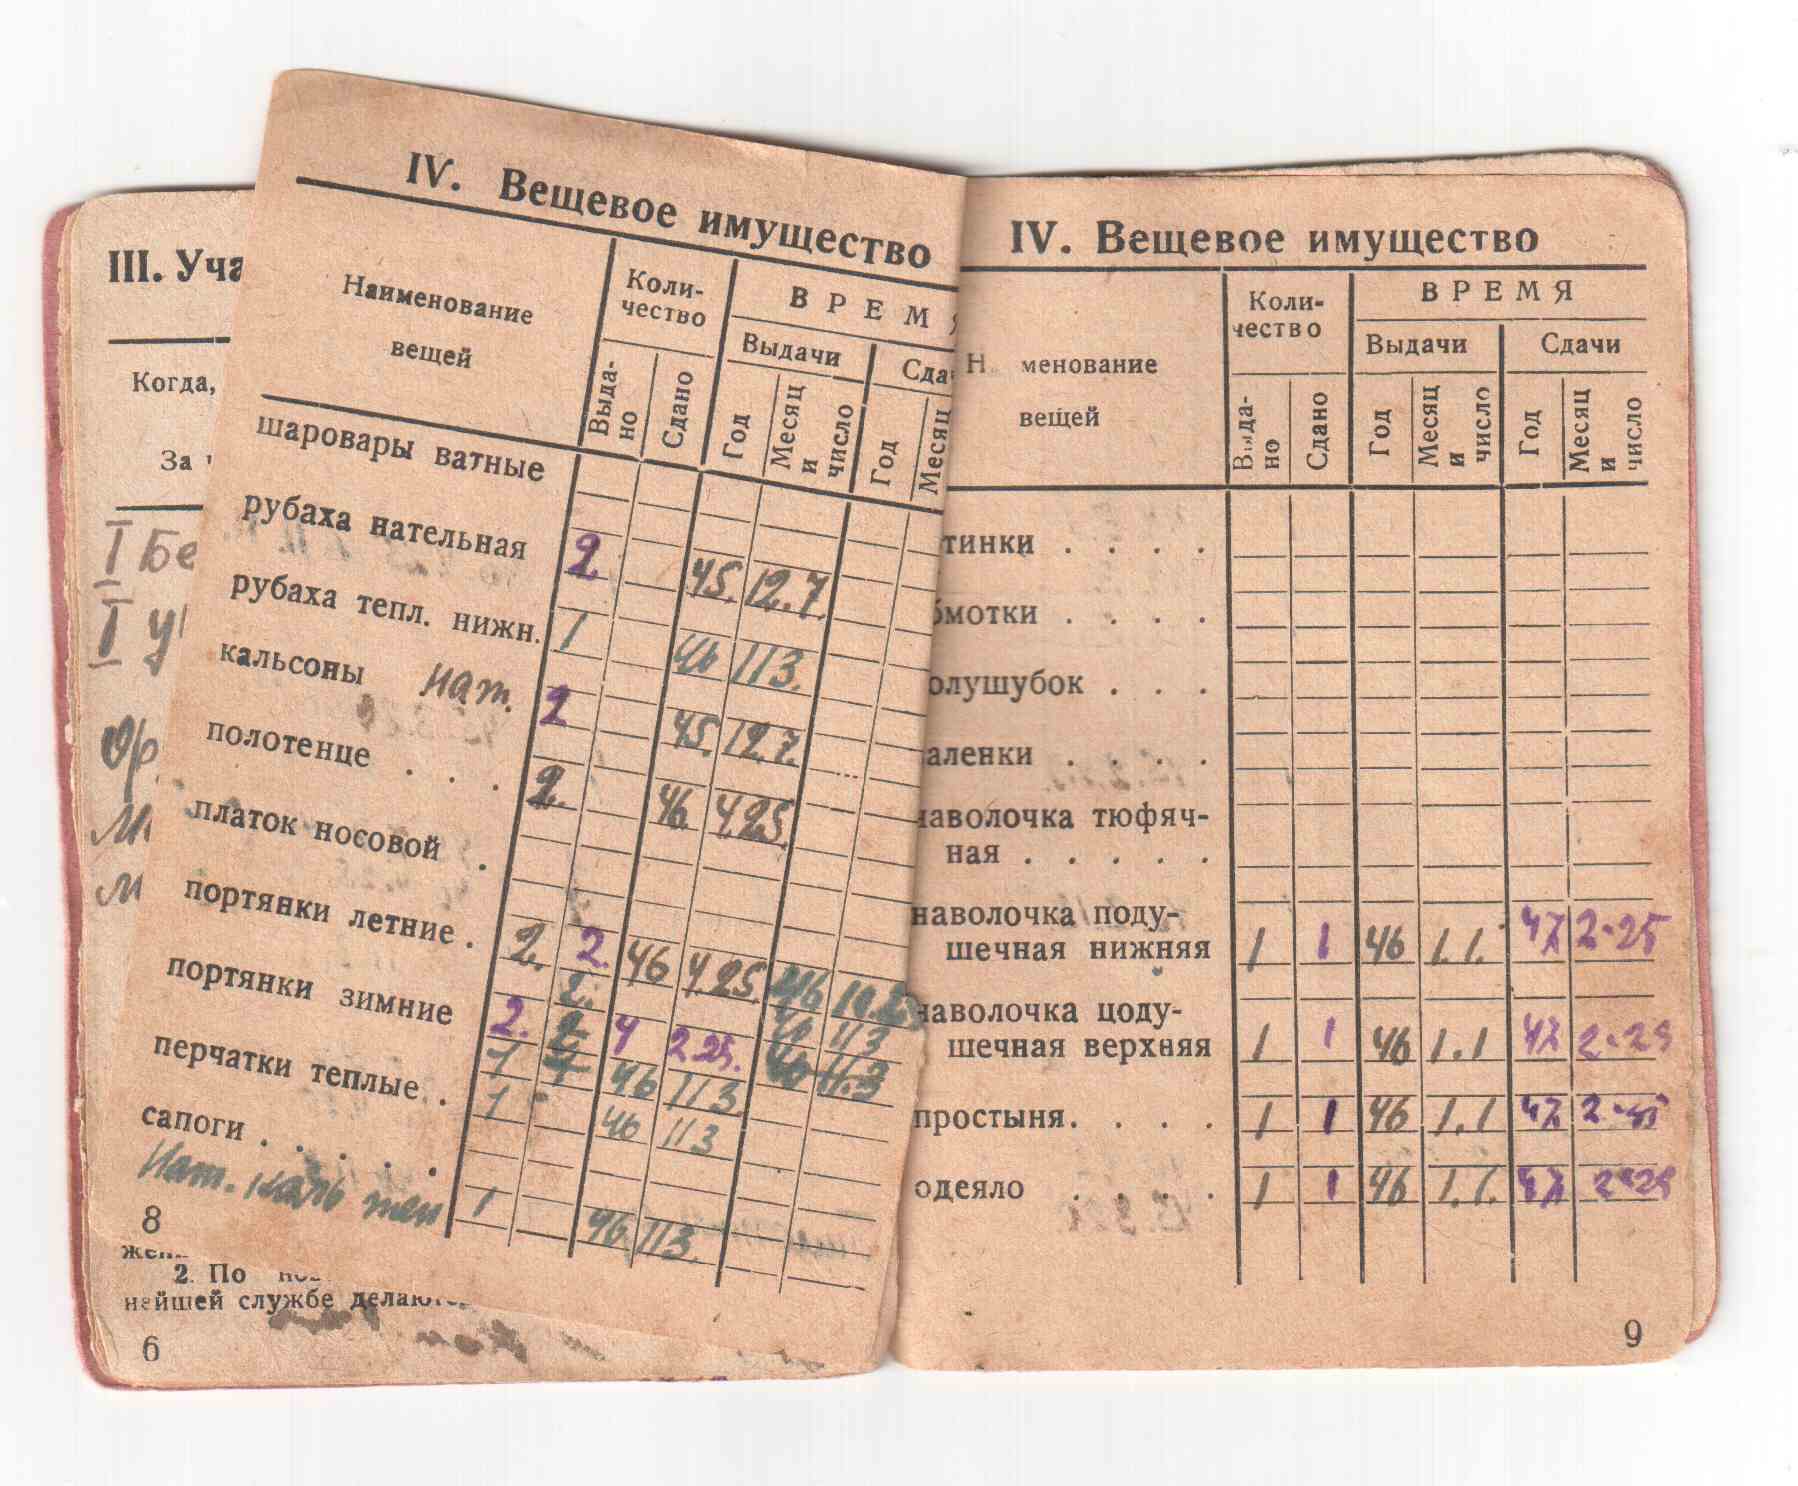 III. Уча
Когда,
За
I Бе
I у
2. По
нейшей службе делают
6
IV. Вещевое имущество
Наименование вещей
Коли-
чество
ВРЕМЯ
Выдачи
Сда
Выда-
но
Сдано
Год
Месяц
и
число
Год
Месяц
шаровары ватные
рубаха нательная 2 45. 12.7
рубаха тепл. нижн. 1 46 113.
кальсоны нат. 2 45. 12.7.
полотенце . . . 2. 46. 4.25.
платок носовой .
портянки летние . 2. 2. 46 4.25. 46
портянки зимние 2. 2 4 2.25. 113
перчатки теплые . 1 46 113
сапоги . . . . .
46 113
Нат. каль теп 1 46 113.
8
IV. Вещевое имущество
Н менование
вещей
Коли-
чество
ВРЕМЯ
Выдачи
Сдачи
Выда-
но
Сдано
Год
Месяц
и
число
Год
Месяц
и
число
тинки . . . .
бмотки . . . .
олушубок . . .
аленки . . . .
наволочка тюфяч-
ная . . . . .
наволочка поду-
шечная нижняя 1 1 46 1.1. 47 2-25
наволочка цоду-
шечная верхняя 1 1 46 1.1 47 2-25
простыня . . . . 1 1 46 1.1 47 2-25
одеяло . . . . 1 1 46 1.1. 47 2-25
9